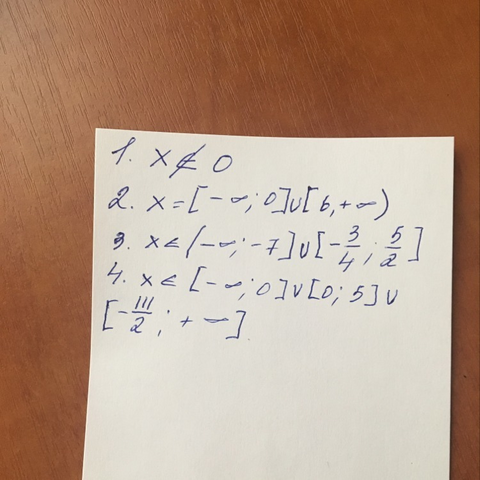 1. x ∉ 0
2. x = [-∞; 0]∪[6, +∞)
3. x ∈ (-∞; -7]∪[-3/4; 5/2]
4. x ∈ [-∞; 0]∪[0; 5]∪
[-111/2; +∞]